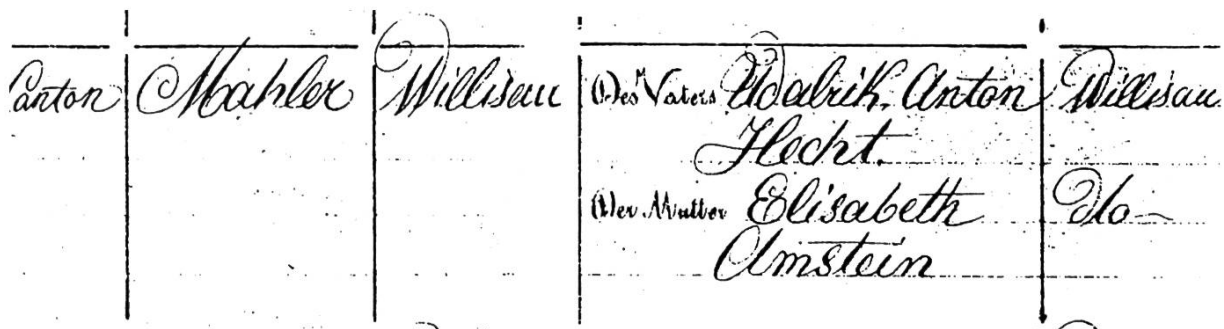 Canton Mahler Willisau Des Vaters Udalrik. Anton Willisau
Hecht.
Der Mutter Elisabeth do
Amstein